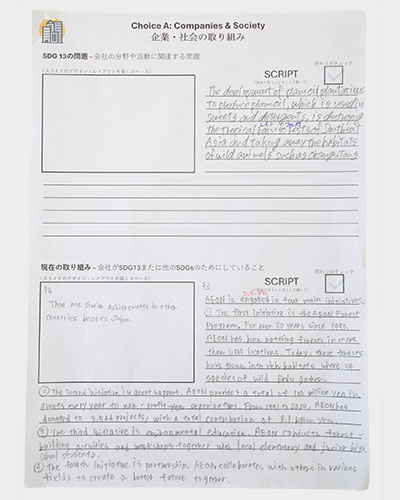 Choice A: Companies & Society
企業・社会の取り組み
SDG 13の問題 – 会社の分野や活動に関連する問題
(スライドのデザイン・レイアウトを描くスペース)
SCRIPT
The development of plam oil plantations
to produce plam oil, which is used in
sweets and detergents, is destroying
the tropical forests of Southeast
Asia and taking away the habitats
of wild animals such as orangutang.
現在の取り組み – 会社がSDG13または他のSDGsのためにしていること
(スライドのデザイン・レイアウトを描くスペース)
SCRIPT
There are similar achievements in other
countries besides Japan.
AEON is engaged in four main initiatives.
① The first initiative is the AEON Forest
Program. For over 30 years since
AEON has been planting forests in more
than locations. Today, these forests
have grown into rich habitats where
species of wild birds gather.
② The second initiative is grant support. AEON provides a total of 100 million yen in
grants every year to non-profit organizations. From 1991 to AEON has
donated to projects, with a total contribution of billion yen.
③ The third initiative is environmental education. AEON conducts forest-
building activities and workshops together with local elementary and junior high
school students.
④ The fourth initiative is partnership. AEON collaborates with others in various
fields to create a better future together.